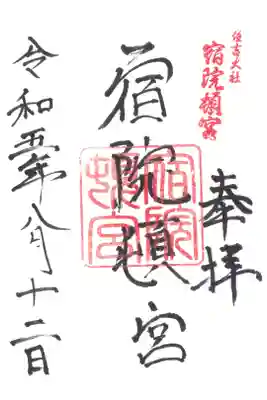 住吉大社
宿院頓宮
奉拝
宿院頓宮
宿院
頓宮
令和五年八月十二日